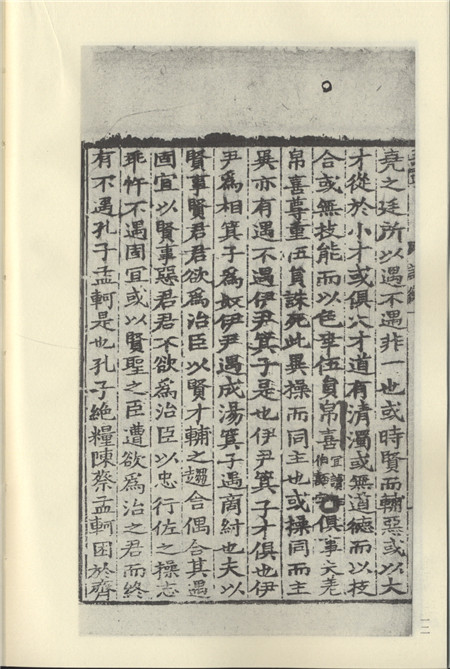 堯之廷所以遇不遇非一也或時賢而輔惡或以大
才從於小才或俱大才道有清濁或無道德而以技
合或無技能而以色幸伍員帛喜俱事夫差
帛喜尊重伍員誅死此異操而同主也或操同而主
異亦有遇不遇伊尹箕子是也伊尹箕子才俱也伊
尹爲相箕子爲奴伊尹遇成湯箕子遇商紂也夫以
賢事賢君君欲爲治臣以賢才輔之趨合偶合其遇
固宜以賢事惡君君不欲爲治臣以忠行佐之操志
乖忤不遇固宜或以賢聖之臣遭欲爲治之君而終
有不遇孔子孟軻是也孔子絶糧陳蔡孟軻困於齊